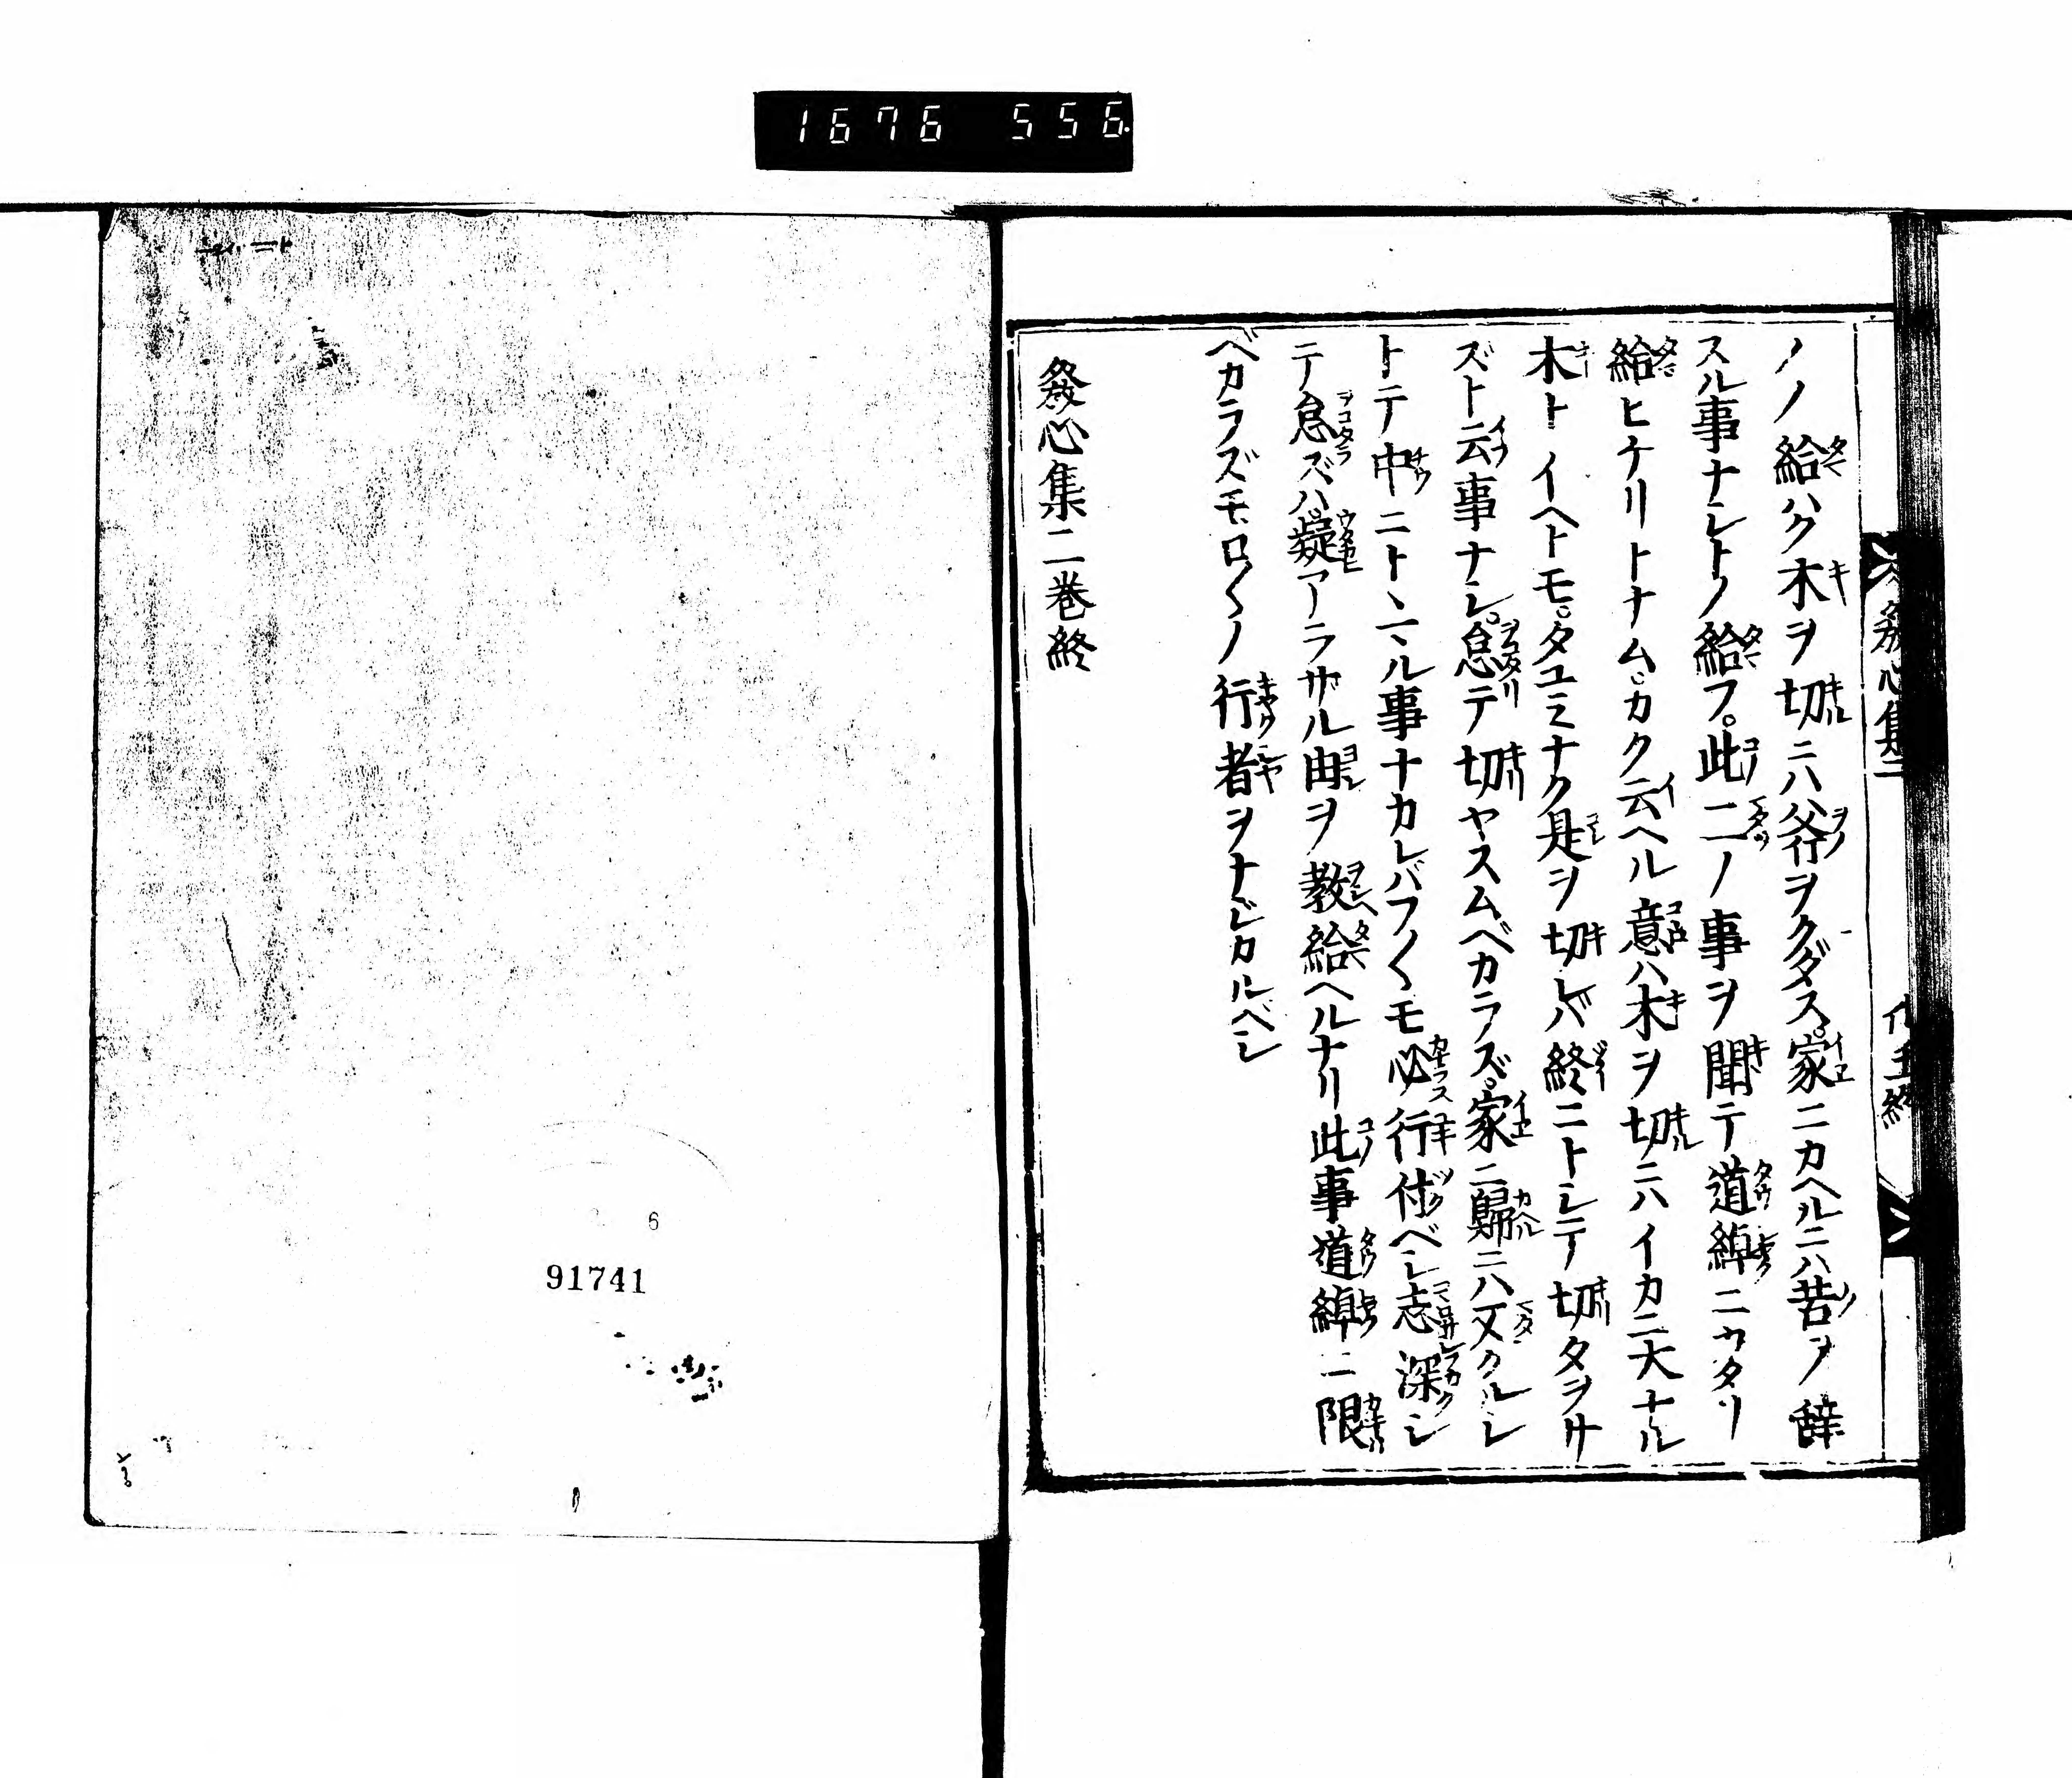 1676 556.
ノノ給ハク木ヲ切ニハ斧ヲクダス。家ニカヘルニハ苦ヲ辞
スル事ナシトノ給フ。此二ノ事ヲ聞テ道綽ニカタリ
給ヒケリトナム。カク云ヘル意ハ木ヲ切ニハイカニ大ナル
木トイヘトモ。タユミナク是ヲ切レバ終ニトシテ切タヲサ
ズト云事ナシ。怠テ切ヤスムベカラズ。家ニ歸ニハ又クルシ
トテ中ニトヽマル事ナカレバフ〳〵モ必行付ベシ志深シ
テ怠ズハ疑アラサル由ヲ教給ヘルナリ此事道綽ニ限
ベカラズモロ〳〵ノ行者ヲナジカルベシ
發心集二巻終
發心集二
91741
6